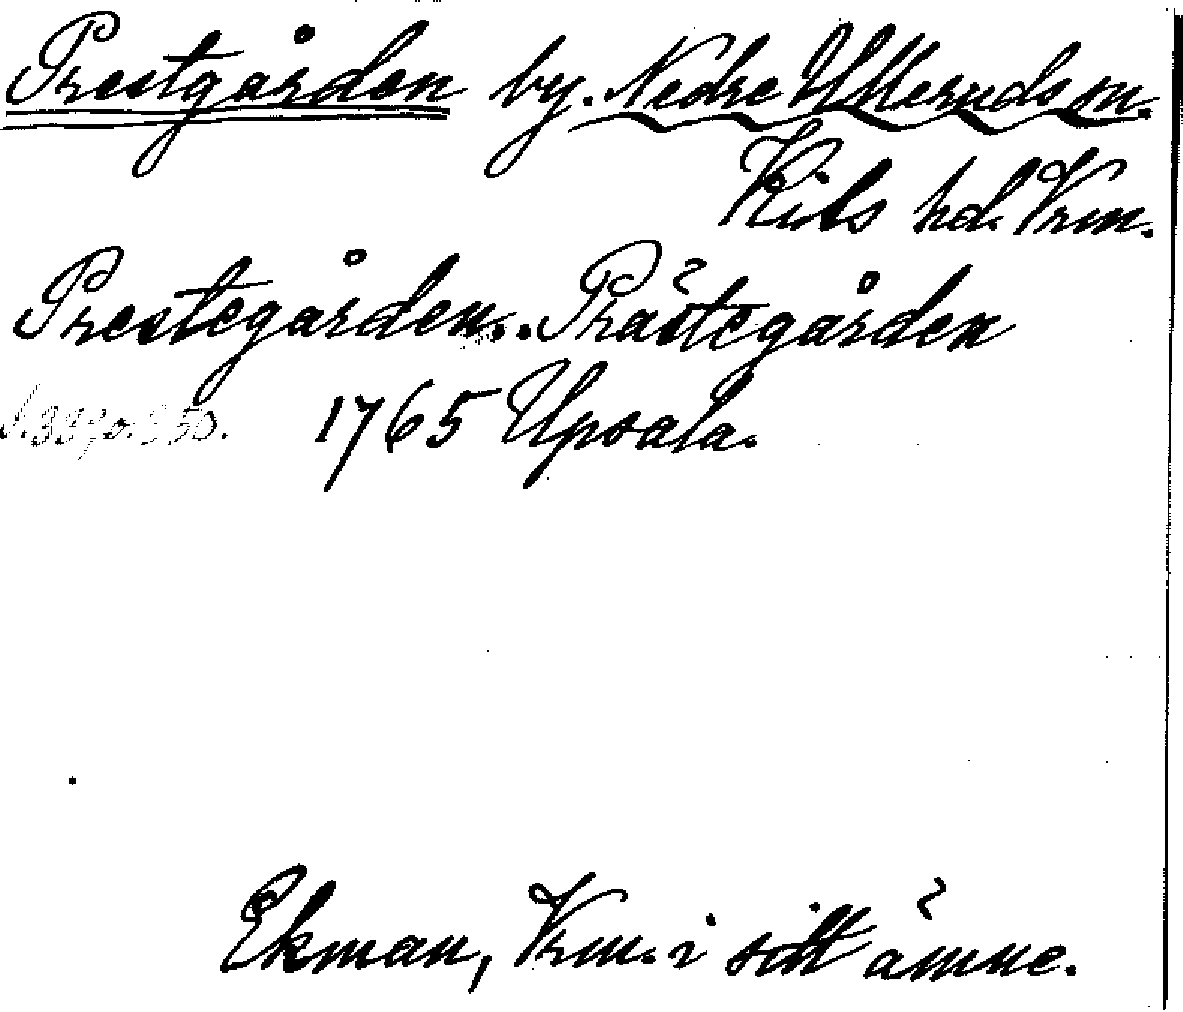 Prestgården by. Nedre Ulleruds sn.
Kils hd. Vrm.
Prestegården.. Prästegården
1765 Upsala.
Ekman, Vrm. i sitt ämne.